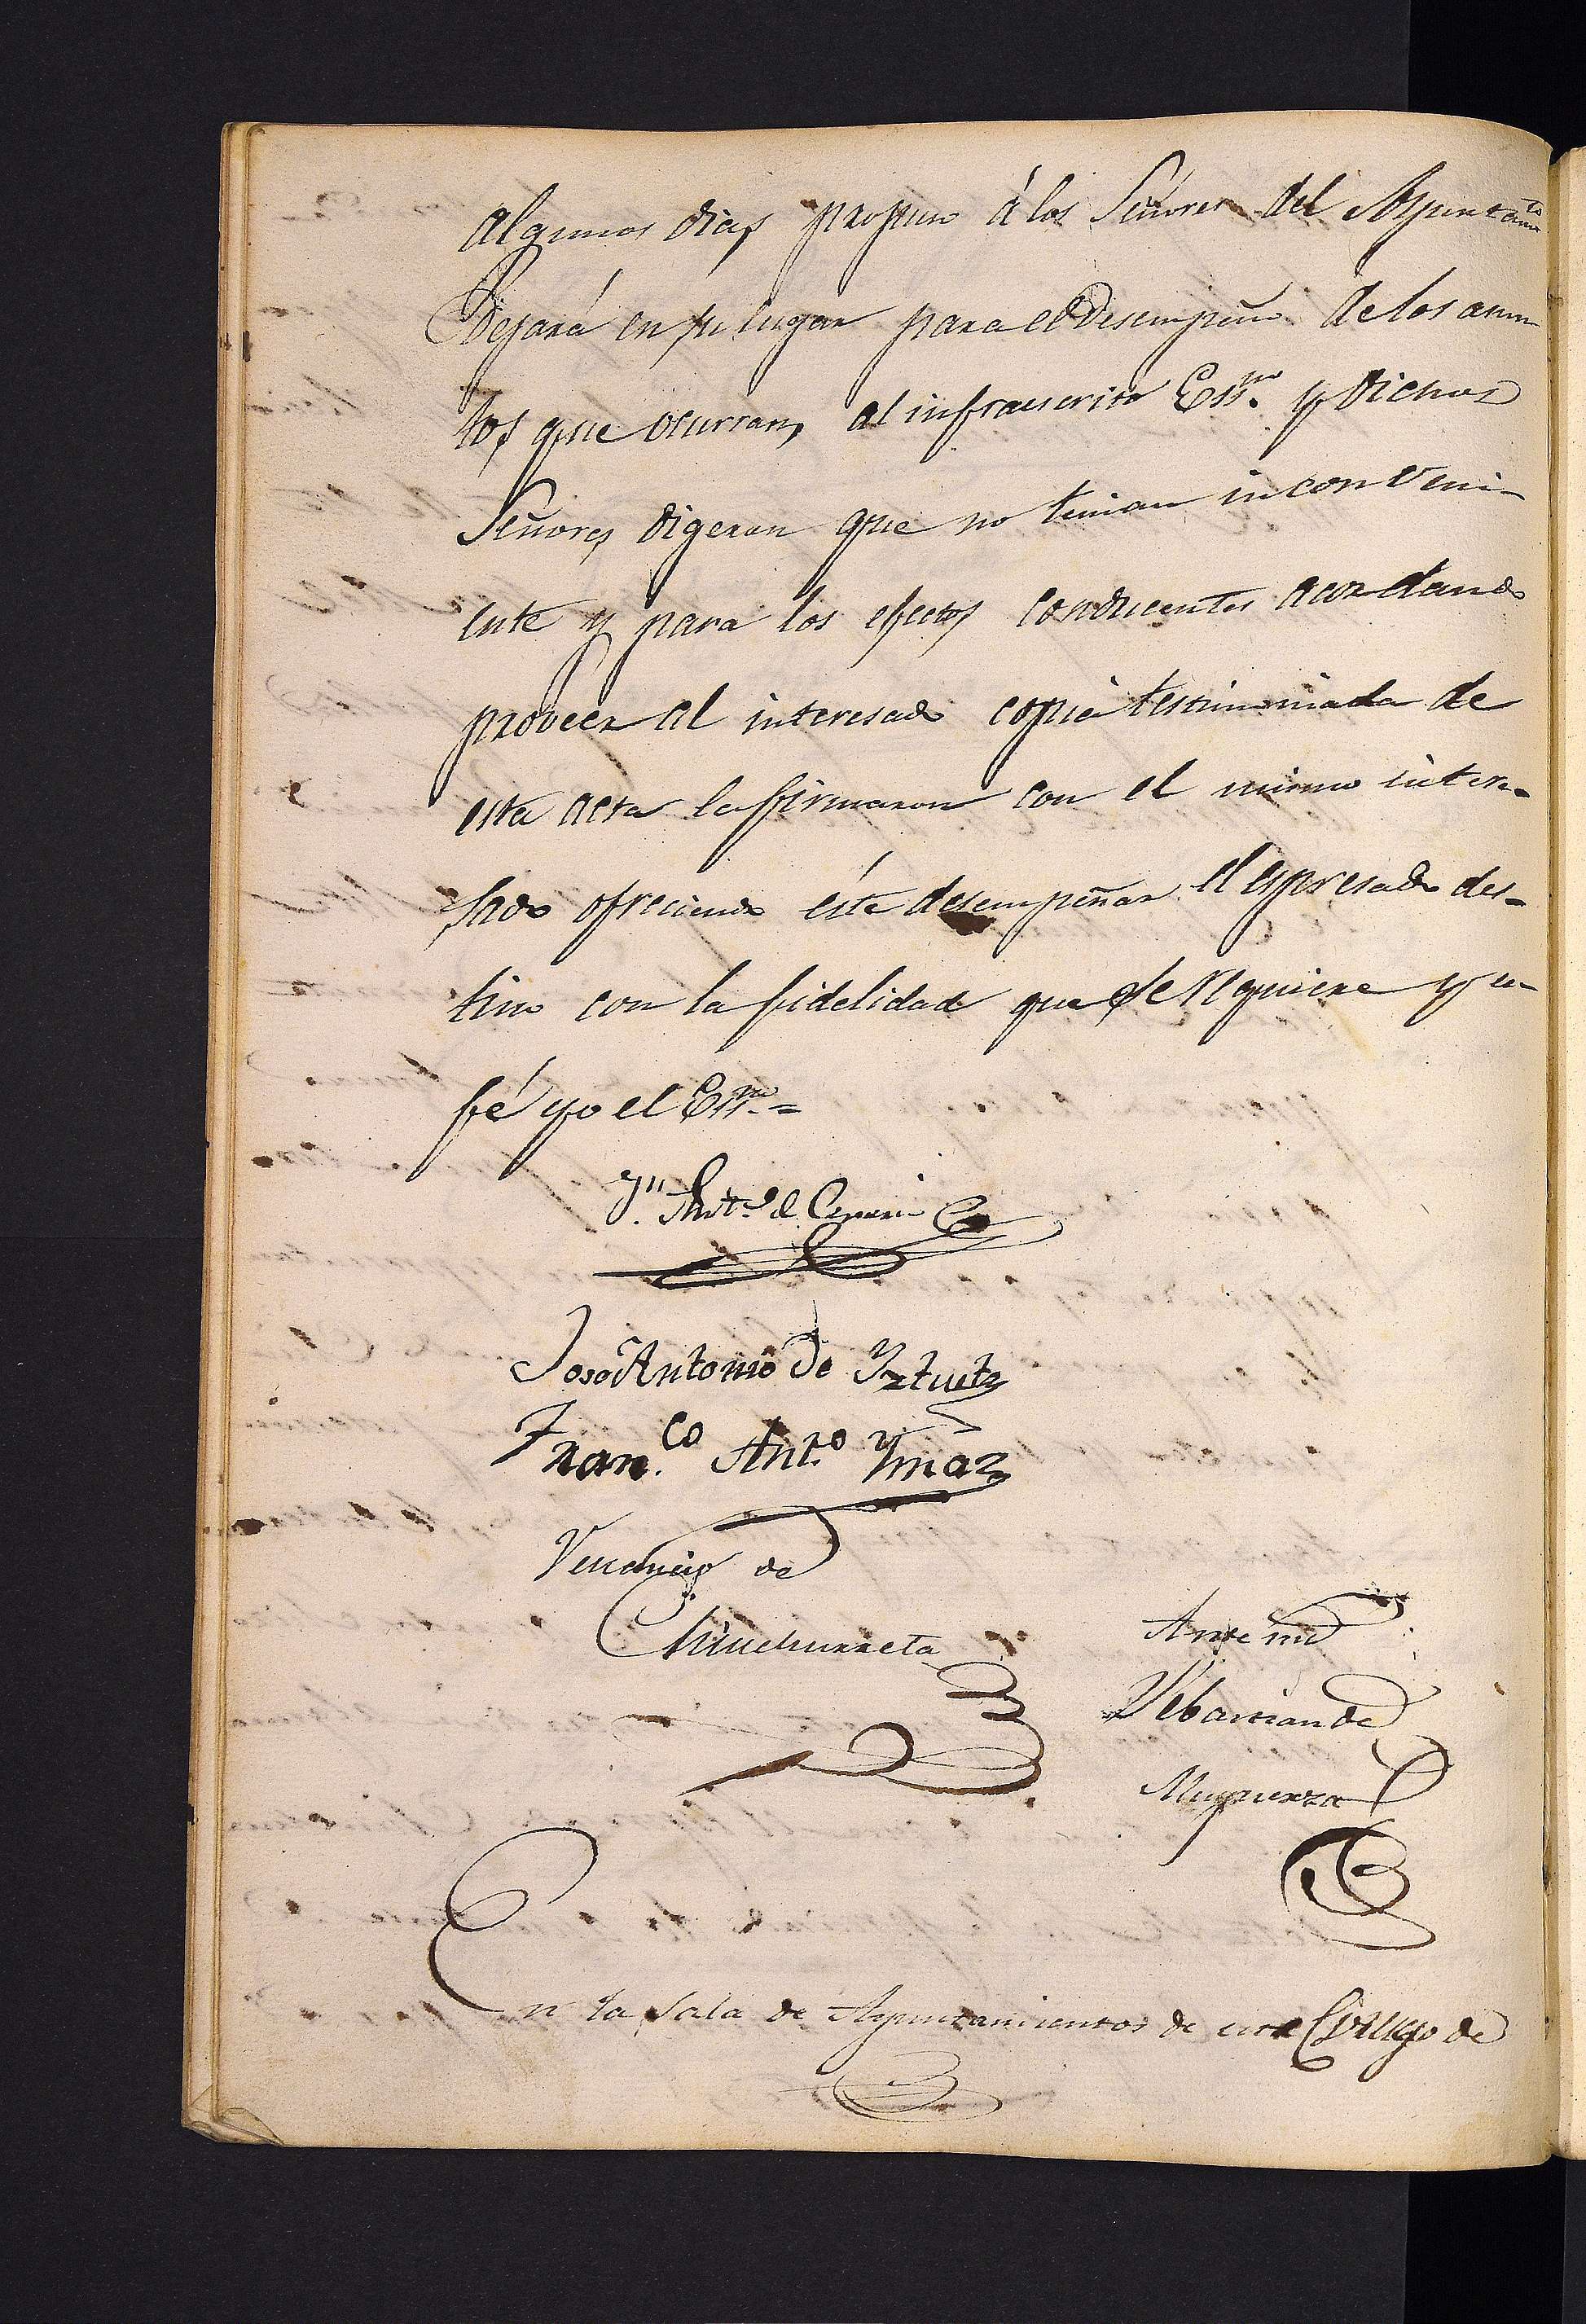 algunos dias propuso á los Señores del Ayuntamto
dejará en su lugar para el desempeño de los asun
tos que ocurran, al infraescrito Essno. y dichos
Señores digeron que no tenian inconveni-
ente y para los efectos conducentes acordando
proveer al interesado copia testimoniada de
esta acta la firmaron con el mismo intere-
sado ofreciendo éste desempeñar el espresado des-
tino con la fidelidad que se requiere y en
fé yo el Essno.=
Jn. Anto. de
José Antonio de Yztueta
Franco. Anto. Ymaz
Venancio de
Chinchurreta
Ante mi
Sebastian de
Muguerza
En la Sala de Ayuntamientos de este Concejo de